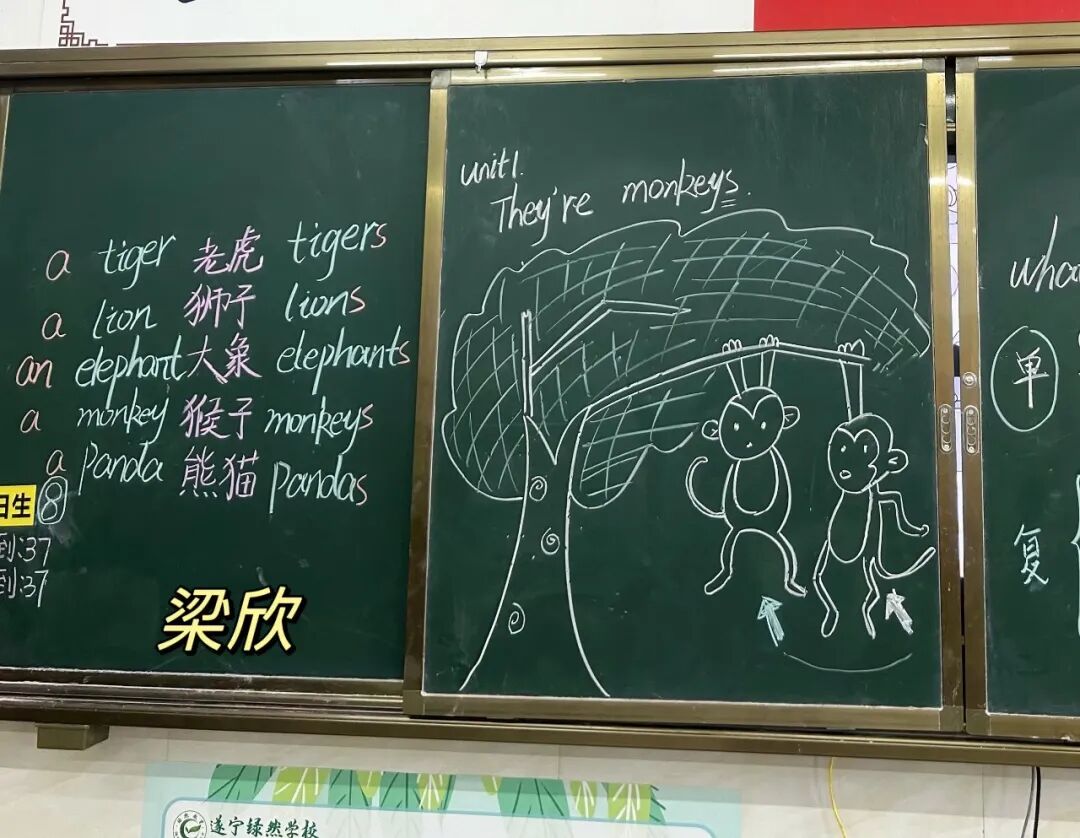 a tiger 老虎 tigers
a lion 狮子 lions
an elephant 大象 elephants
a monkey 猴子 monkeys
a panda 熊猫 pandas
日生 8
到:37
到:37
梁欣
unit1.
They're monkeys.
单
复
遂宁绿然学校